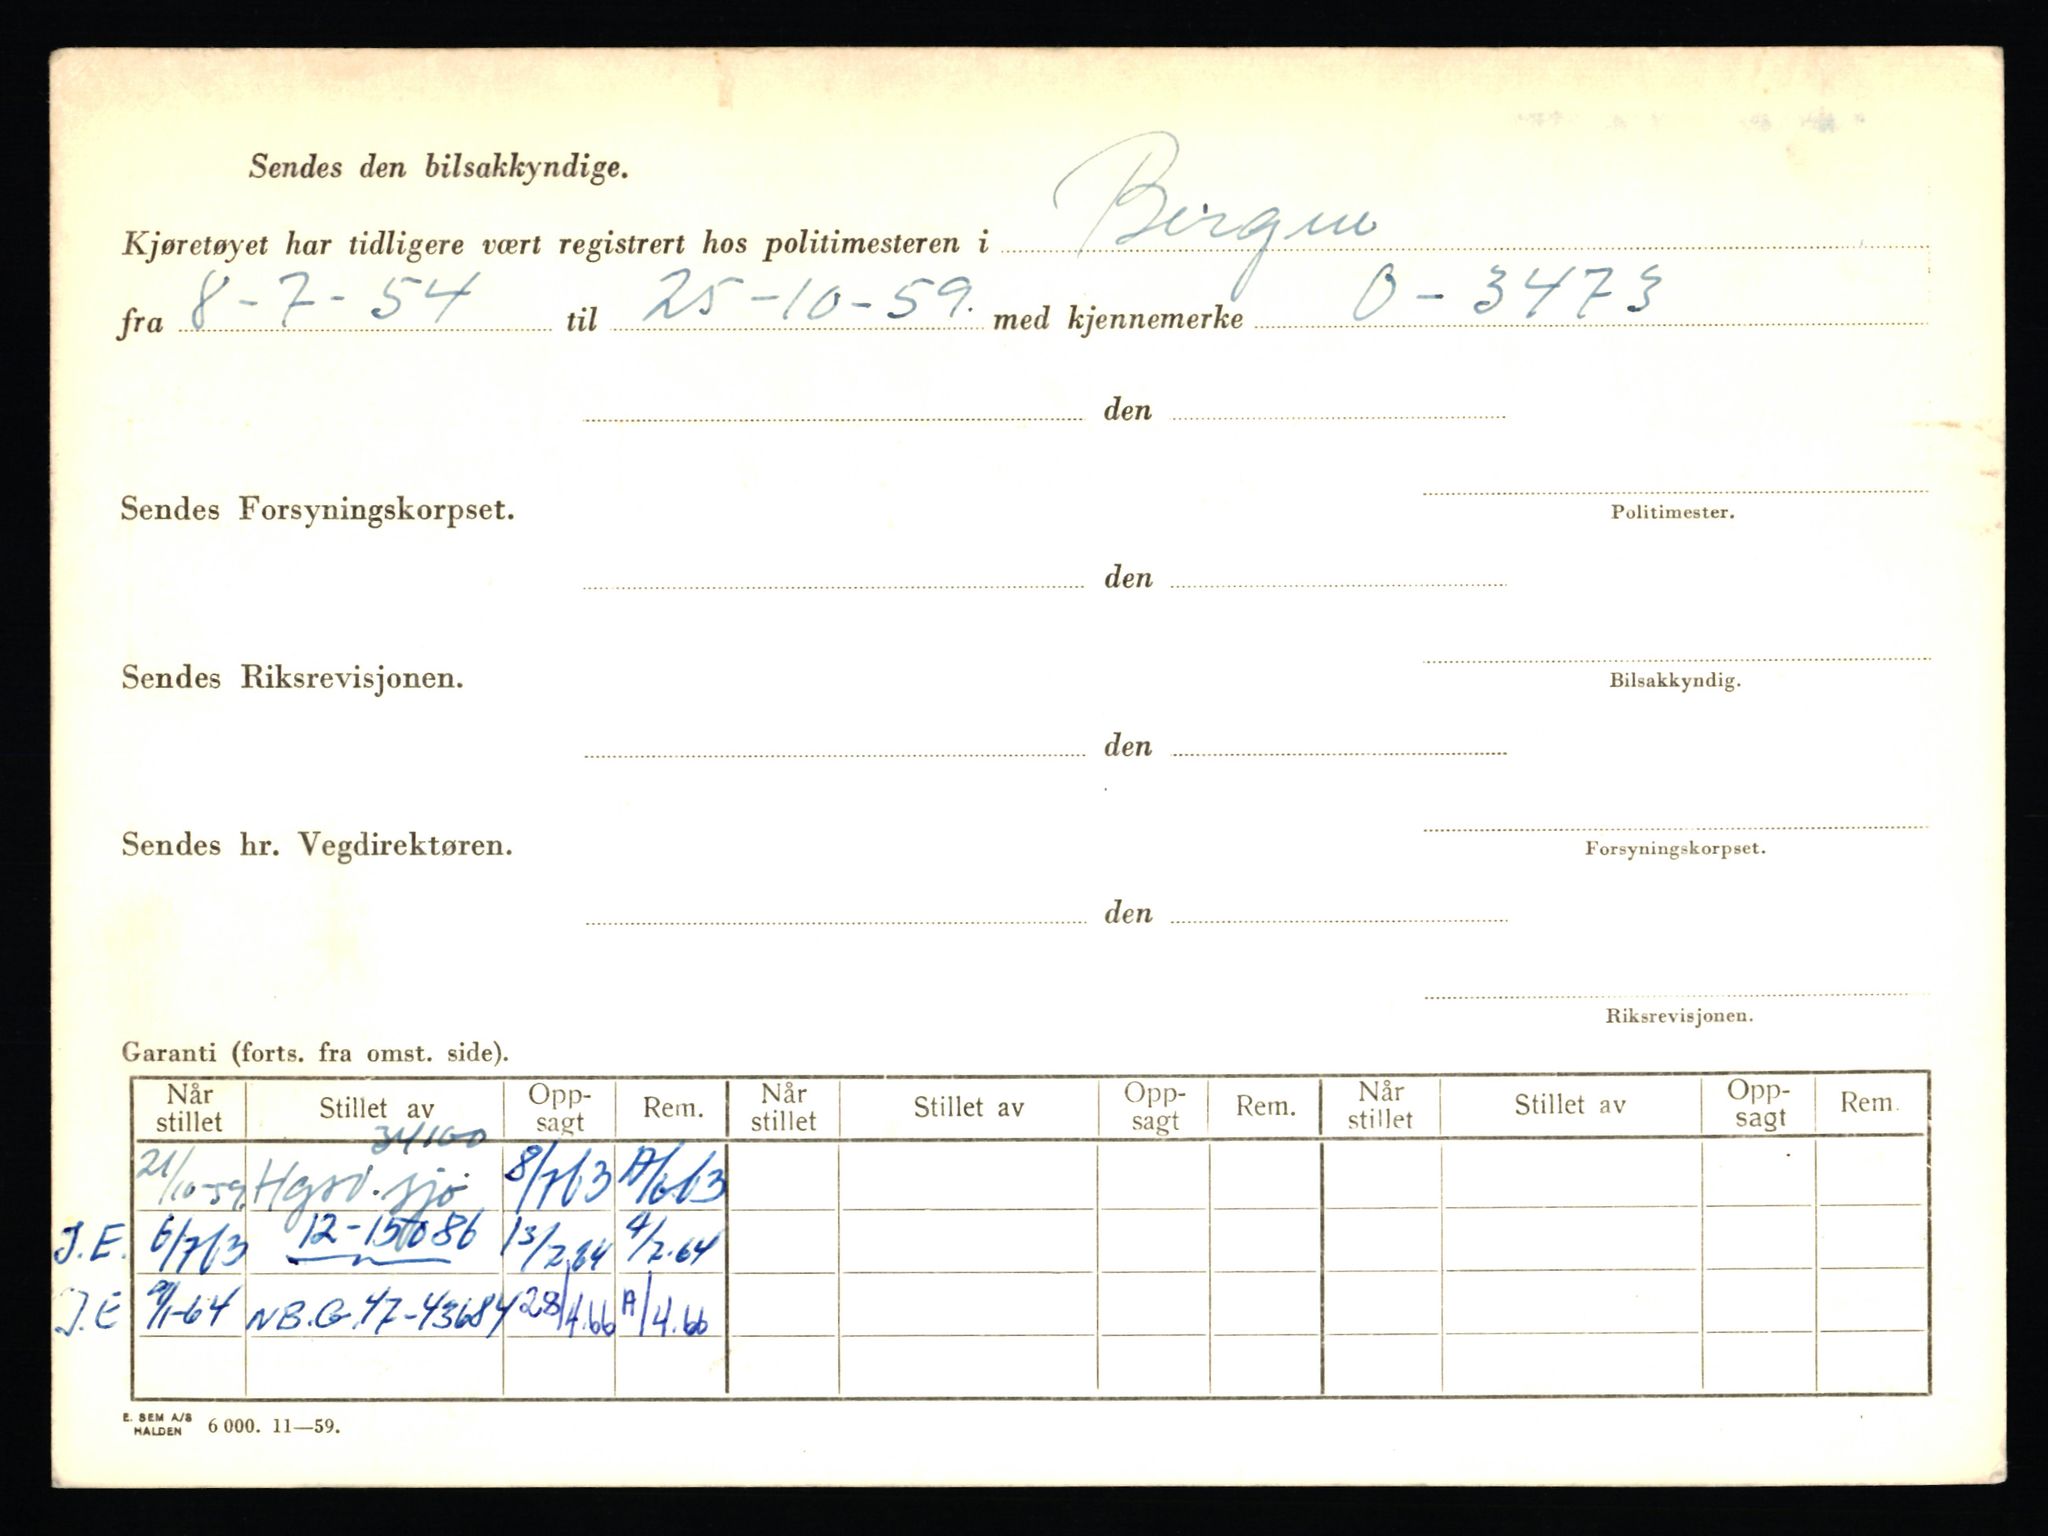 Sendes den bilsakkyndige.
Kjøretøyet har tidligere vært registrert hos politimesteren i Bergen
fra 8-7-54 til 25-10-59. med kjennemerke O-3473
den
Politimester.
Sendes Forsyningskorpset.
den
Bilsakkyndig.
Sendes Riksrevisjonen.
den
Forsyningskorpset.
Sendes hr. Vegdirektøren.
den
Riksrevisjonen.
Garanti (forts. fra omst. side).
Når stillet Stillet av Opp-sagt Rem. Når stillet Stillet av Opp-sagt Rem. Når stillet Stillet av Opp-sagt Rem.
34100
21/10-59 sjø 8/7 63 A/6 63
J.E. 6/7 63 12-15086 13/2.64 4/2.64
J.E N.B.G. 47-43684 28/4.66 A/4.66
E. SEM A/S
HALDEN 6 000. 11—59.